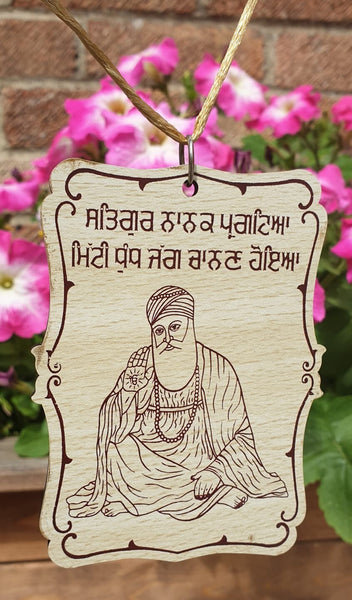 ਸਤਿਗੁਰ ਨਾਨਕ ਪ੍ਰਗਟਿਆ
ਮਿੱਟੀ ਧੁੰਧ ਜੱਗ ਚਾਨਣ ਹੋਇਆ